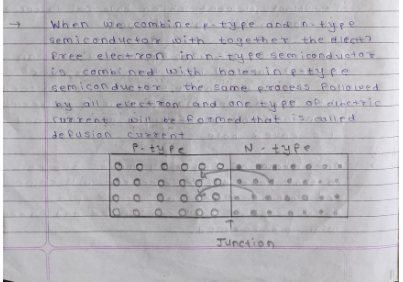 → When we combine p-type and n-type
semiconductor with together the
free electron in n-type semiconductor
is combined with holes in p-type
semiconductor, the same process followed
by all electron and one type of electric
current will be formed that is called
defusion current
P-type N-type
↑
Junction